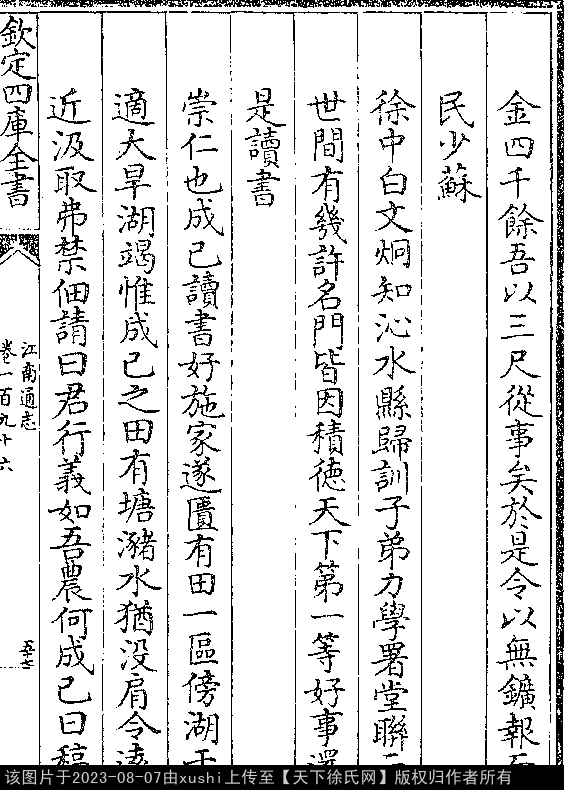 金四千餘吾以三尺從事矣於是令以無鑛報
民少蘇
徐中白文烱知沁水縣歸訓子弟力學署堂聯
世間有幾許名門皆因積徳天下第一等好事
是讀書
崇仁也成己讀書好施家遂匱有田一區傍湖
適大旱湖竭惟成己之田有塘瀦水猶没肩令
近汲取弗禁佃請曰君行義如吾農何成己曰
欽定四庫全書
江南通志
卷一百九十六
该图片于2023-08-07由xushi上传至【天下徐氏网】版权归作者所有